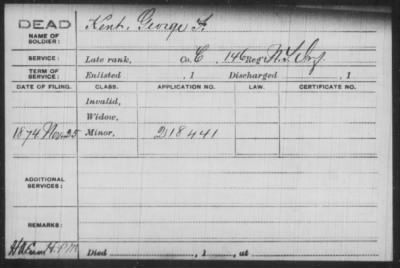 DEAD
NAME OF SOLDIER: Kent, George F.
SERVICE: Late rank, Co. C, 146 Reg't N.Y. Inf
TERM OF SERVICE: Enlisted , 1 Discharged , 1
DATE OF FILING. CLASS. APPLICATION NO. LAW. CERTIFICATE NO.
Invalid,
Widow,
1874 Nov. 25 Minor, 218441
ADDITIONAL SERVICES:
REMARKS:
Died , 1 , at